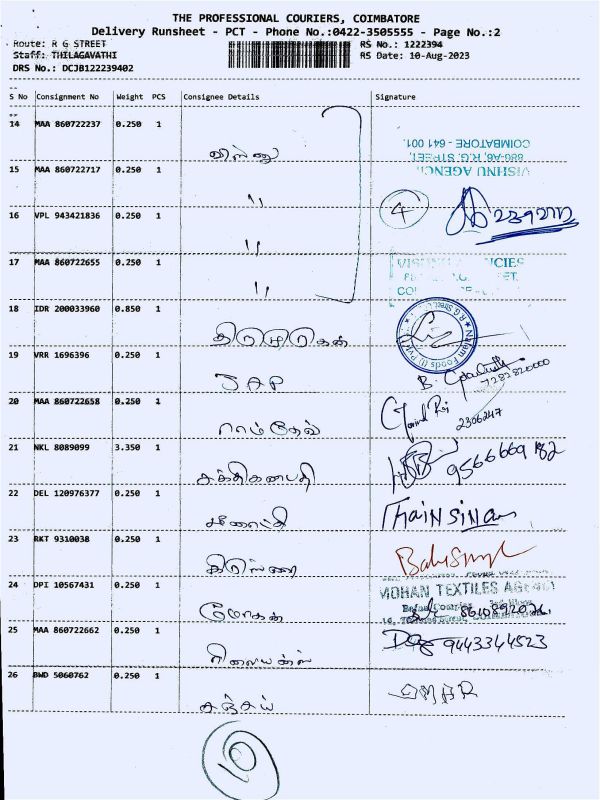 THE PROFESSIONAL COURIERS, COIMBATORE
Delivery Runsheet - PCT - Phone No.:0422-3505555 - Page No.:2
Route: R G STREET RS No.: 1222394
Staff: THILAGAVATHI RS Date: 10-Aug-2023
DRS No.: DCJB122239402
S No Consignment No Weight PCS Consignee Details Signature
14 MAA 860722237 0.250 1 விஸ்ணு
VISHNU AGENCIES
886-A6, R.G. STREET,
COIMBATORE - 641 001.
15 MAA 860722717 0.250 1 "
16 VPL 943421836 0.250 1 " 4
17 MAA 860722655 0.250 1 "
18 IDR 200033960 0.850 1 திருமுருகன் Nalam Foods (I) Pvt R G Street
19 VRR 1696396 0.250 1 JAP B. 7282820000
20 MAA 860722658 0.250 1 ராம்தேவ் 2306247
21 NKL 8089099 3.350 1 சக்திகணபதி 9566669182
22 DEL 120976377 0.250 1 மீனாட்சி
23 RKT 9310038 0.250 1 கிரிஸ்ணா
24 DPI 10567431 0.250 1 மோகன் MOHAN TEXTILES AGENCY
25 MAA 860722662 0.250 1 ரிலையன்ஸ் 9443344523
26 BWD 5060762 0.250 1 சஞ்சய்